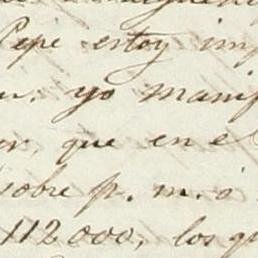 Pepe estoy imp
yo manif
que en el
sobre p. m. ó
112000, los qu